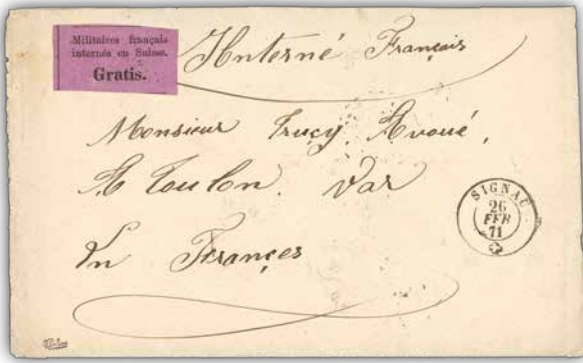 Militaires français
internés en Suisse.
Gratis.
Interné Français
Monsieur Trucy, Avoué,
A Toulon. Var
En Françes
SIGNAU
26
FEB
71